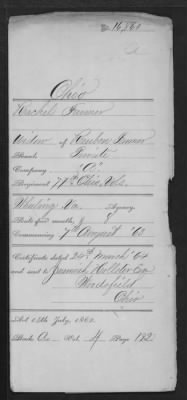 No 16,860
Ohio
Rachel Turner
Widow of Reuben Turner
Rank, Private
Company "C"
Regiment 77th Ohio Vols.
Wheeling Va. Agency.
Rate per month, $ 8
Commencing 7th August '63
Certificate dated 24th March '64
and sent to Jeremiah Hollister Esq
Woodsfield
Ohio
Act 14th July, 1862.
Book A Vol. 4 Page 182